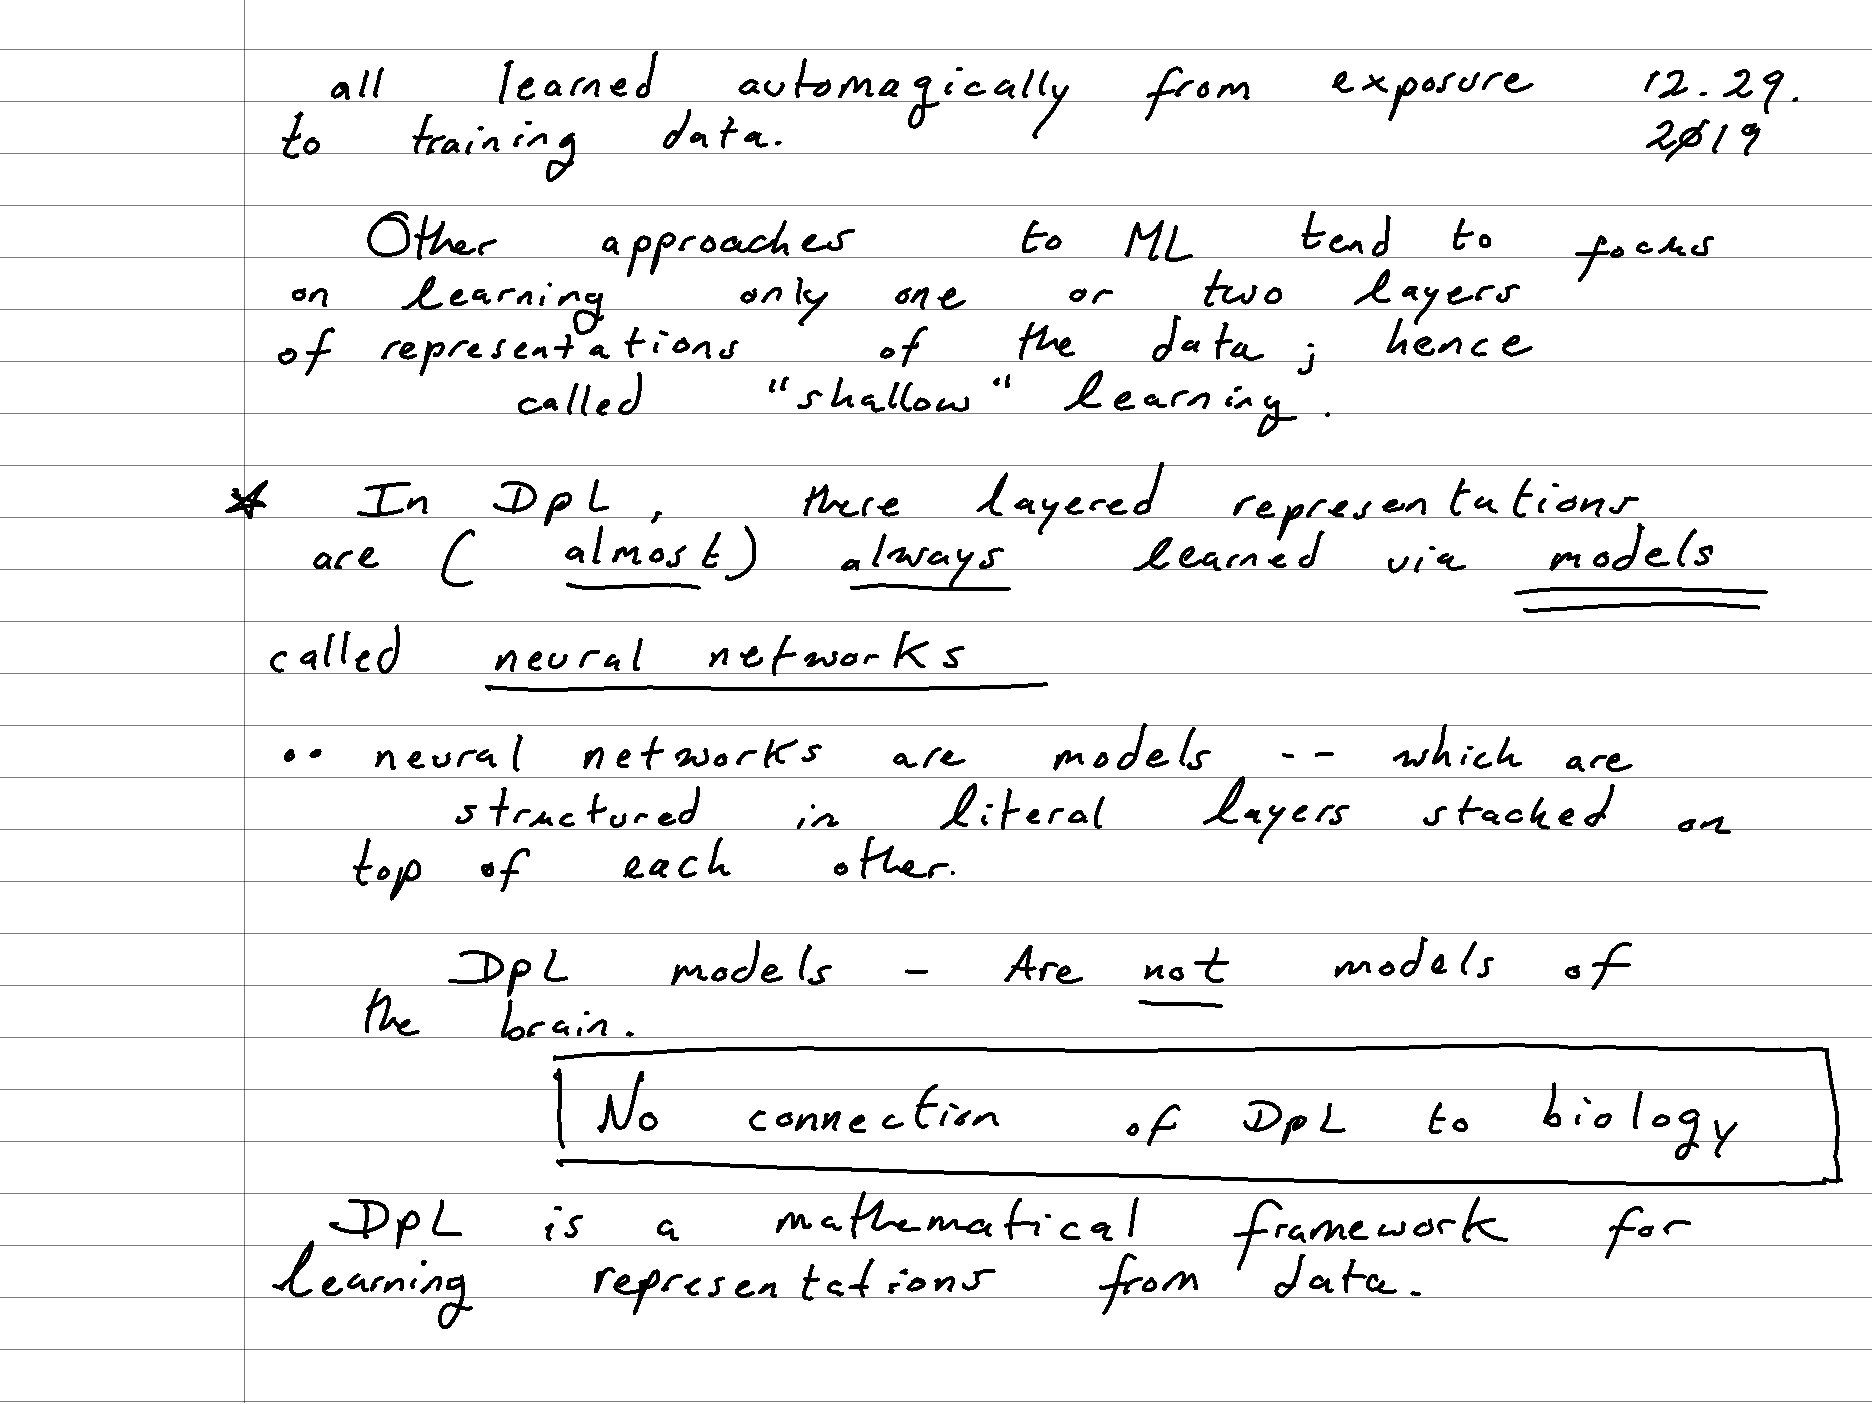 all learned automagically from exposure 12.29.
to training data. 2019
Other approaches to ML tend to focus
on learning only one or two layers
of representations of the data; hence
called "shallow" learning.
* In DpL, there layered representations
are (almost) always learned via models
called neural networks
•• neural networks are models -- which are
structured in literal layers stacked on
top of each other.
DpL models - Are not models of
the brain.
No connection of DpL to biology
DpL is a mathematical framework for
learning representations from data.